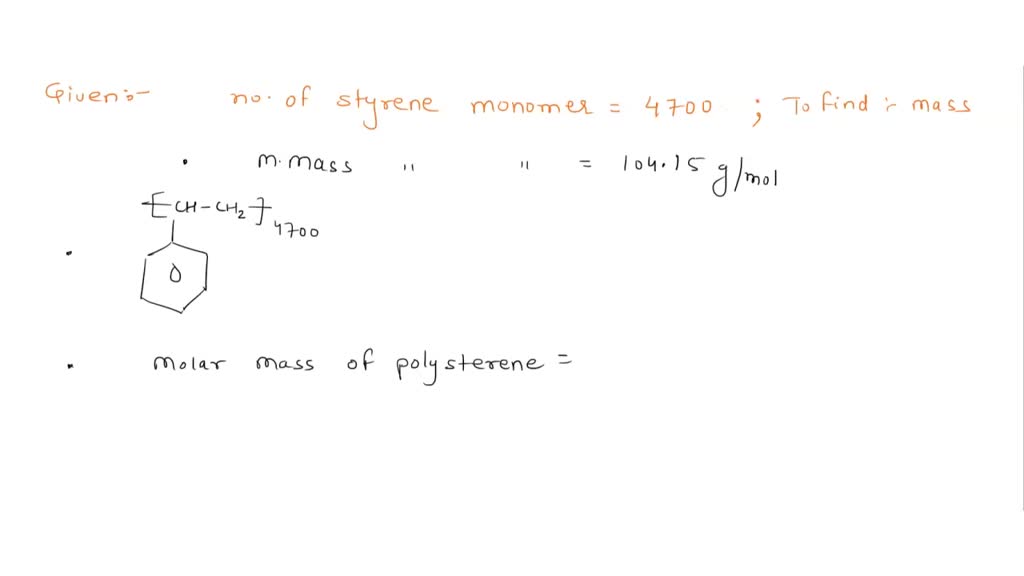 Given:- no. of styrene monomer = 4700 ; To find :- mass
• m. mass " " = 104.15 g/mol
[CH-CH2]4700
•
• molar mass of polysterene =